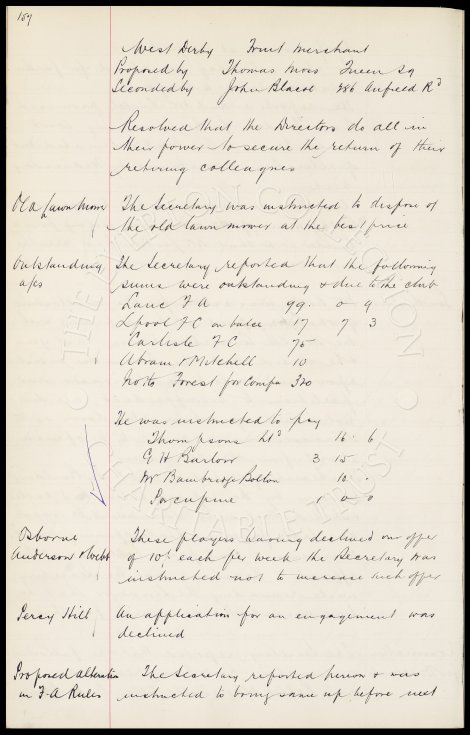 157
West Derby Fruit Merchant
Proposed by Thomas Moss Queen Sq
Seconded by John Blacoe 286 Anfield Rd
Resolved that the Directors do all in
their power to secure the return of their
retiring colleagues
Old Lawn Mower The Secretary was instructed to dispose of
the old lawn mower at the best price
Outstanding The Secretary reported that the following
a/cs sums were outstanding & due to the club
Lanc F A 99. 0 9
Lpool F C on balce 17 7 3
Carlisle F C 75
Abram & Mitchell 10
Notts Forest for Compn 320
He was instructed to pay
Thompsons Ltd 16. 6
G H Barlow 3 15
Mr Bambridge Bolton 10.
Porcupine 1 0 0
Osborne These players having declined our offer
Anderson & Webb of 10/- each per week the Secretary was
instructed not to increase such offer
Percy Hill An application for an engagement was
declined
Proposed alteration The Secretary reported hereon & was
in F A Rules instructed to bring same up before next
THE EVERTON COLLECTION
CHARITABLE TRUST